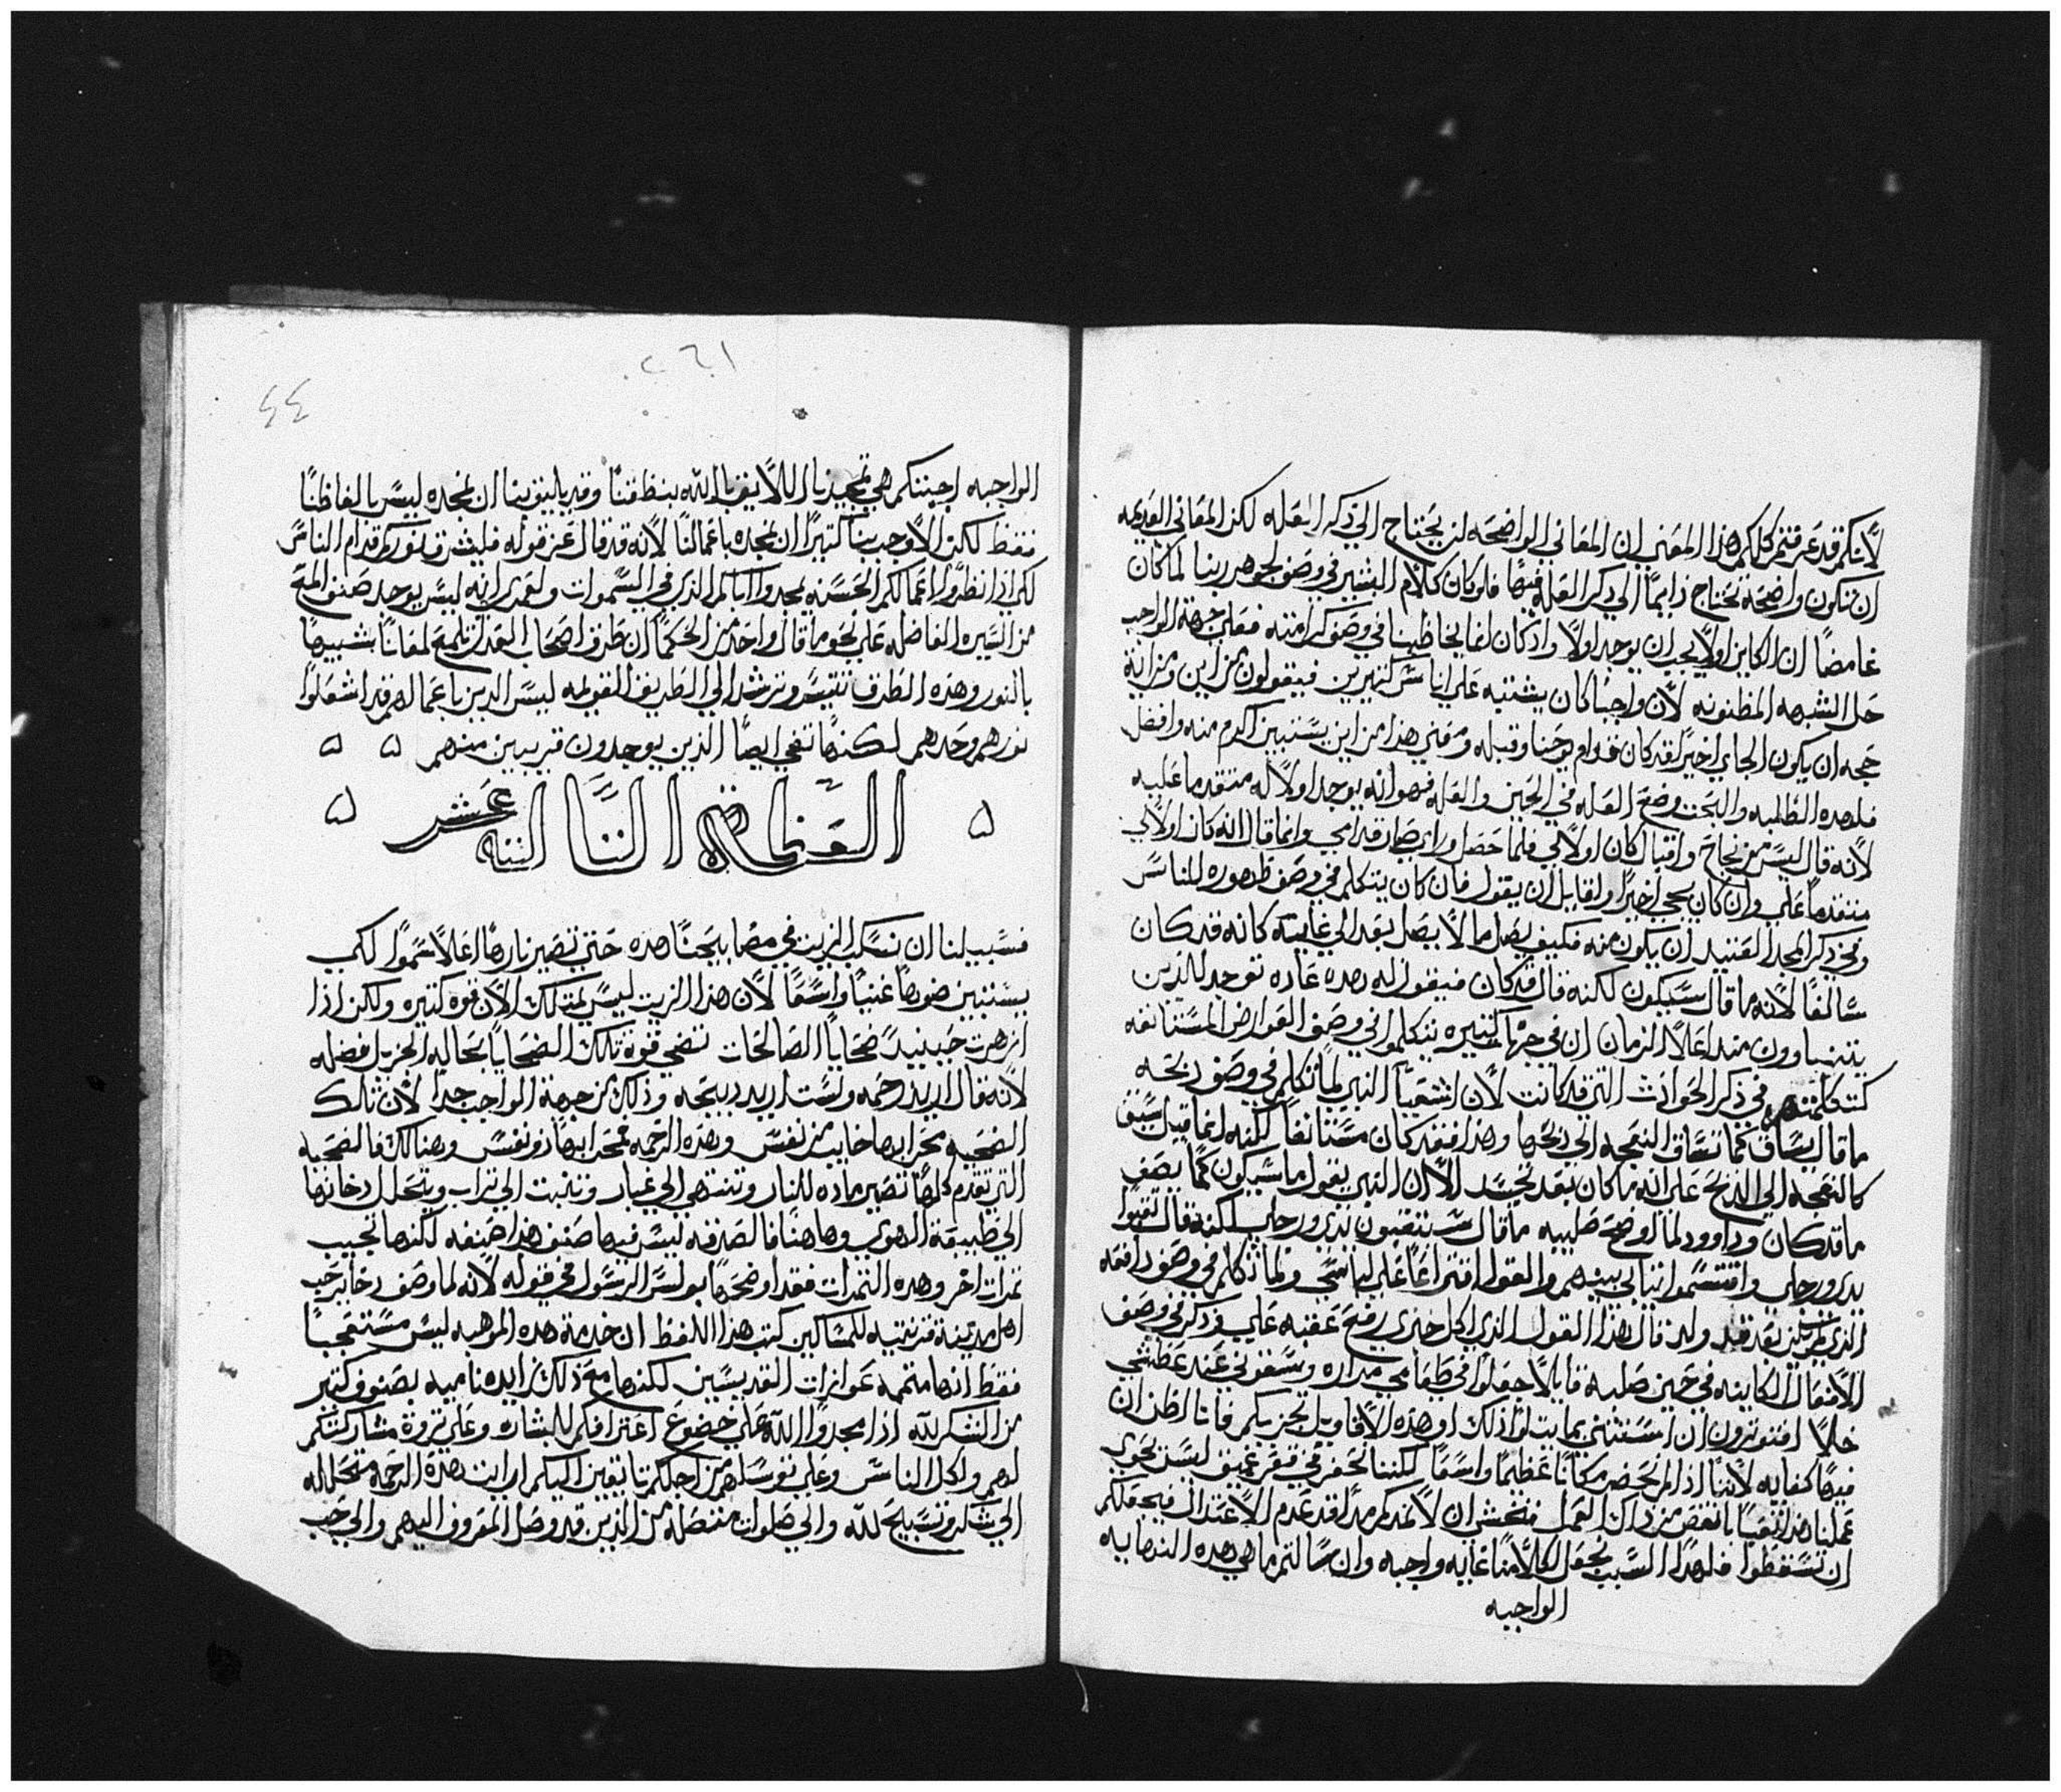 لانكم قد عرفتم كلكم هذا المعنى ان المعاني الواضحه لن يحتاج الي ذكر العله لكن المعاني القديمه
ان تكون واضحة تحتاج دايمًا الي ذكر العله فيها فلو كان كلام البشير في وصف لجوهر ربنا لما كان
غامضًا ان الكاين اولاً يجب ان يوجد اولاً واذ كان انما يخاطبنا في وصف كرامته فعلى جهة الواجب
حل الشبهه المظنونه لان واجبًا كان يشتبه على اناس كثيرين فيقولون من اين ومن اية
حجه ان يكون الجاي اخيرًا لقد كان قدام يوحنا وقبله ومعني هذا من اين يستبين اكرم منه وافضل
فلهذه الطلبه والبحث وضع العله في الحين والعله فهو انه يوجد اولاً له متقدما عليه
لانه قال ليس من نجاح واقبال كان اولاً لي فلما حصل وراي صار قدامي وانما قال انه كان اولاً لي
متقدمًا علي وان كان يجي اخيرًا ولقايل ان يقول فان كان يتكلم في وصف ظهوره للناس
وفي ذكر المجد العتيد ان يكون منه فكيف يصل ما لا يصل بعد الي غايته كانه قد كان
سالفًا لانه ما قال سيكون لكنه قال قد كان فيقول له هذه عاده توجد للذين
يتنباوون منذ اعلا الزمان ان في جهات كثيره يتكلمون في وصف العوارض المستانفه
كتكلمهم في ذكر الحوادث التي قد كانت لان اشعيا النبي لما تكلم في وصف ذبحه
ما قال يساق كما تساق النعجه الي ذبحها وهذا فقد كان مستانفًا لكنه انما قيل سيق
كالنعجه الي الذبح على انه ما كان بعد تجسد الا ان النبي يقول ما سيكون كما يصف
ما قد كان وداوود لما اوضح صلبيه ما قال سيثقبون يدي ورجلي لكنه قال ثقبوا
يدي ورجلي واقتسموا ثيابي بينهم والقول اقتراعًا علي لباسي ولما تكلم في وصف دافعه
الذي لم يكن بعد قيد ولد قال هذا القول الذي اكل خبزي رفع عقبه علي وذكر في وصف
الافعال الكاينه في حين صلبه قايلاً جعلوا في طعامي مراره وسقوني عند عطشي
خلاً افتوثرون ان استثني بما يتلوا ذلك او هذه الاقاويل تجزيكم فانا اظن ان
فيها كفايه لاننا اذا لم نحضر مكانًا عظيمًا واسعًا لكننا نحفر في قعر عميق ليس نحوي
عملنا هذا تعبًا بانقص من ذاك العمل فنخشي ان لا نمدكم مدًا قد عدم الاعتدال فيجعلكم
ان تسقطوا فلهذا السبب نجعل لكلامنا غايه واجبه وان سالتم ما هي هذه النهايه
الواجبه
١٦٢
٤٤
الواجبه اجبتكم هي تمجيدنا اللايق بالله بنطقنا وقد يليق بنا ان نمجده ليس بالفاظنا
فقط لكن الاوجب بنا كثيرًا ان نمجده باعمالنا لانه قد قال عز قوله فليشرق نوركم قدام الناس
لكي اذا نظروا اعمالكم الحسنه يمجدوا اباكم الذي في السموات ولعمري انه ليس يوجد صنف المع
من السيره الفاضله على نحو ما قال واحد من الحكما ان طرق اصحاب العدل تلمع لمعانًا شبيهًا
بالنور وهذه الطرق تتيسر وترشد الي الطريق القويمه ليس الذين باعمالهم قد اشعلوا
نورهم وحدهم لكنها تضي ايضًا الذين يوجدون قريبين منهم ۵ ۵
۵ العظة الثالثه عشر ۵
فسبيلنا ان نسكب الزيت في مصابيحنا هذه حتى تصير نارها اعلا سموًا لكي
يستبين ضوها غنيًا واسعًا لان هذا الزيت ليس يمتلك الان قوه كثيره ولكن اذا
ازهرت حينيد ضحايا الصالحات تضي قوة تلك الضحايا بحاليه الجزيل فضله
لانه قال اريد رحمه ولست اريد ذبيحه وذلك من جهة الواجب جدا لان تلك
الضحيه محرابها خايب من نفس وهذه الرحمه محرابها ذو نفس وهنالك فالضحيه
التي تقدم كلها تصير ماده للنار وتنتهي الي غبار وتثبت الي تراب ويتحلل دخانها
الي طبيعة الهوي وهاهنا فالصدقه ليس فيها صنف هذا صنفه لكنها تجيب
ثمرات اخر وهذه الثمرات فقد اوضحها بولس الرسول في قوله لانه لما وصف دخاير حب
اهل مدينة قرنتيه للمساكين كتب هذا اللفظ ان خدمة هذه الموهبه ليس مستعجبًا
فقط انها متممه عوازات القديسين لكنها مع ذلك زايده ناميه بصنوف كثير
من الشكر لله اذا مجدوا الله على خضوع اعترافكم للبشاره وعلى ثروة مشاركتكم
لهم ولكل الناس وعلى توسلهم من اجلكم تايقين اليكم ارايت هذه الرحمه متحلله
الي شكر وتسبيح لله والي صلوات متصله من الذين قد وصل المعروف اليهم والي حب